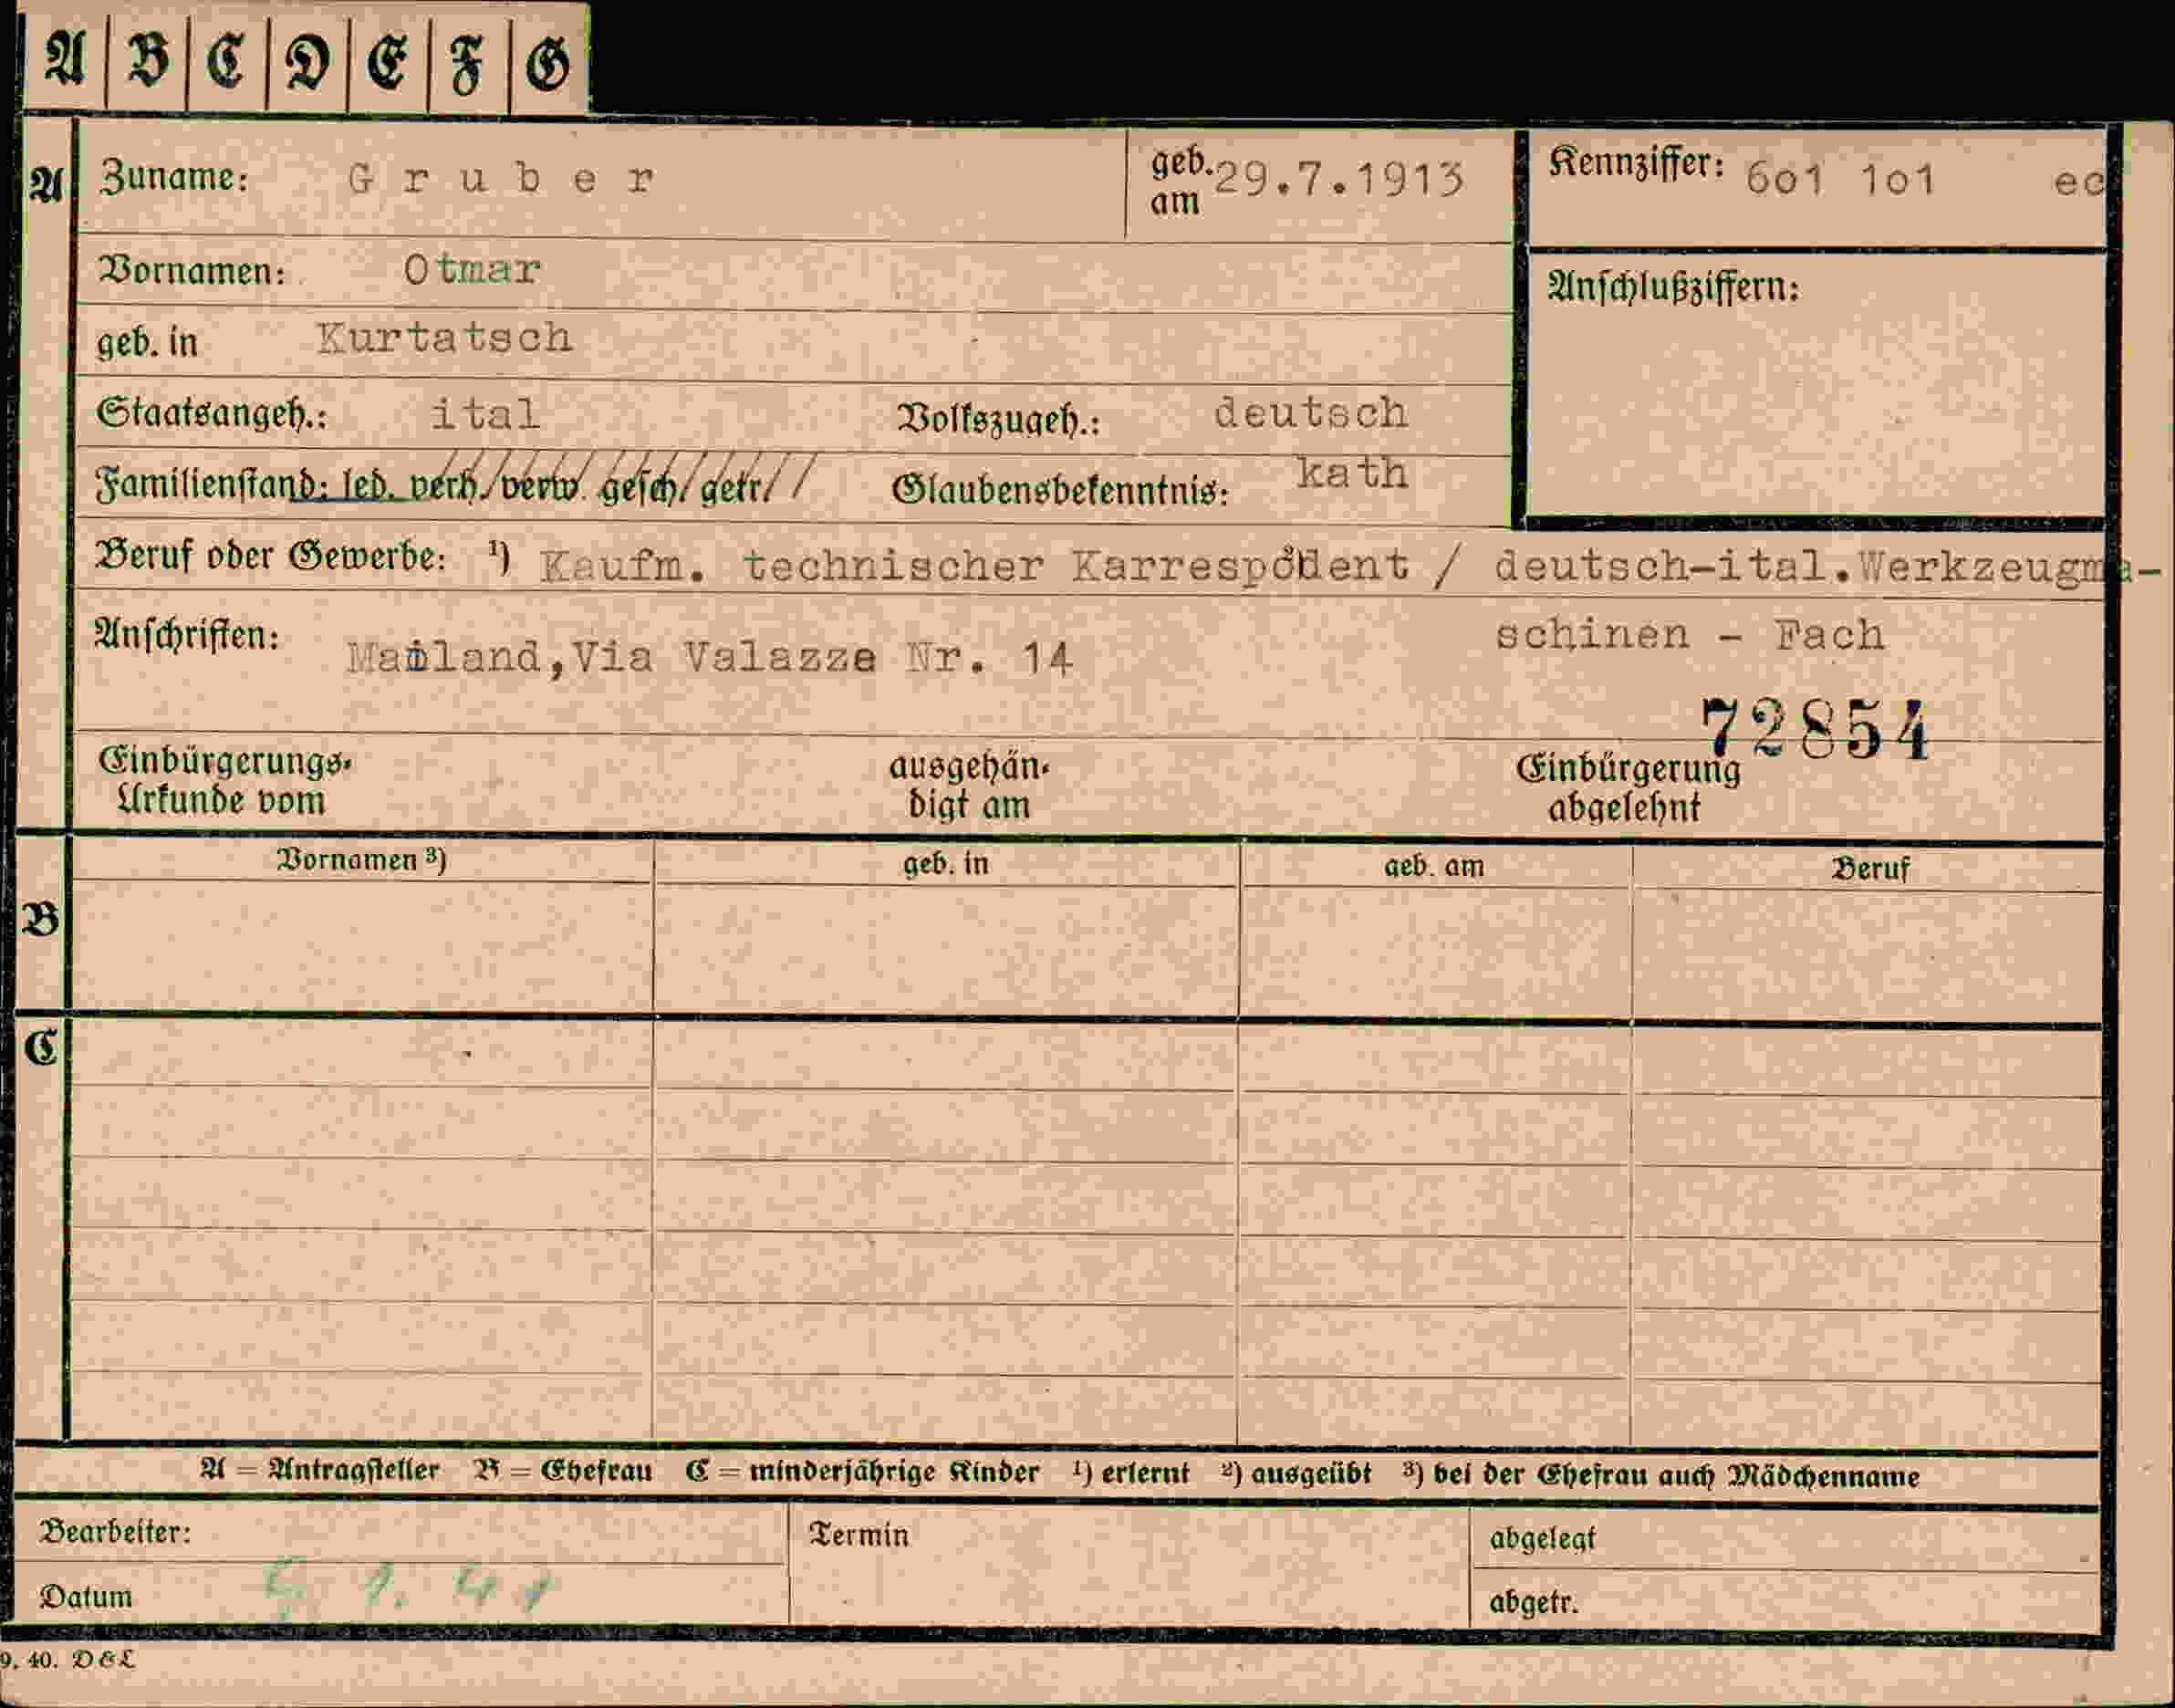 A B C D E F G
A Zuname: Gruber geb. am 29.7.1913 Kennziffer: 6o1 1o1 ec
Vornamen: Otmar
Anschlußziffern:
geb. in Kurtatsch
Staatsangeh.: ital Volkszugeh.: deutsch
Familienstand: led. verh. verw. gesch. getr. Glaubensbekenntnis: kath
Beruf oder Gewerbe: ¹) Kaufm. technischer Karrespondent / deutsch-ital.Werkzeugma-
schinen - Fach
Anschriften: Mailand,Via Valazze Nr. 14
72854
Einbürgerungs-Urkunde vom ausgehändigt am Einbürgerung abgelehnt
Vornamen ³) geb. in geb. am Beruf
B
C
A = Antragsteller B = Ehefrau C = minderjährige Kinder ¹) erlernt ²) ausgeübt ³) bei der Ehefrau auch Mädchenname
Bearbeiter: Termin abgelegt
Datum abgetr.
9. 40. D&L